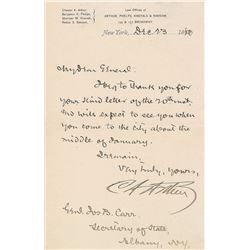 Chester A. Arthur,
Benjamin K. Phelps,
Sherman W. Knevals,
Rastus S. Ransom.
Law Offices of
ARTHUR, PHELPS, KNEVALS & RANSOM,
155 & 157 BROADWAY.
New York, Dec 23 1880
My dear General:
I beg to thank you for
your kind letter of the 20th inst,
and will expect to see you when
you come to the city about the
middle of January.
I remain,
Very truly, yours,
C A Arthur
Genl. Jos B. Carr.
Secretary of State,
Albany, N.Y.